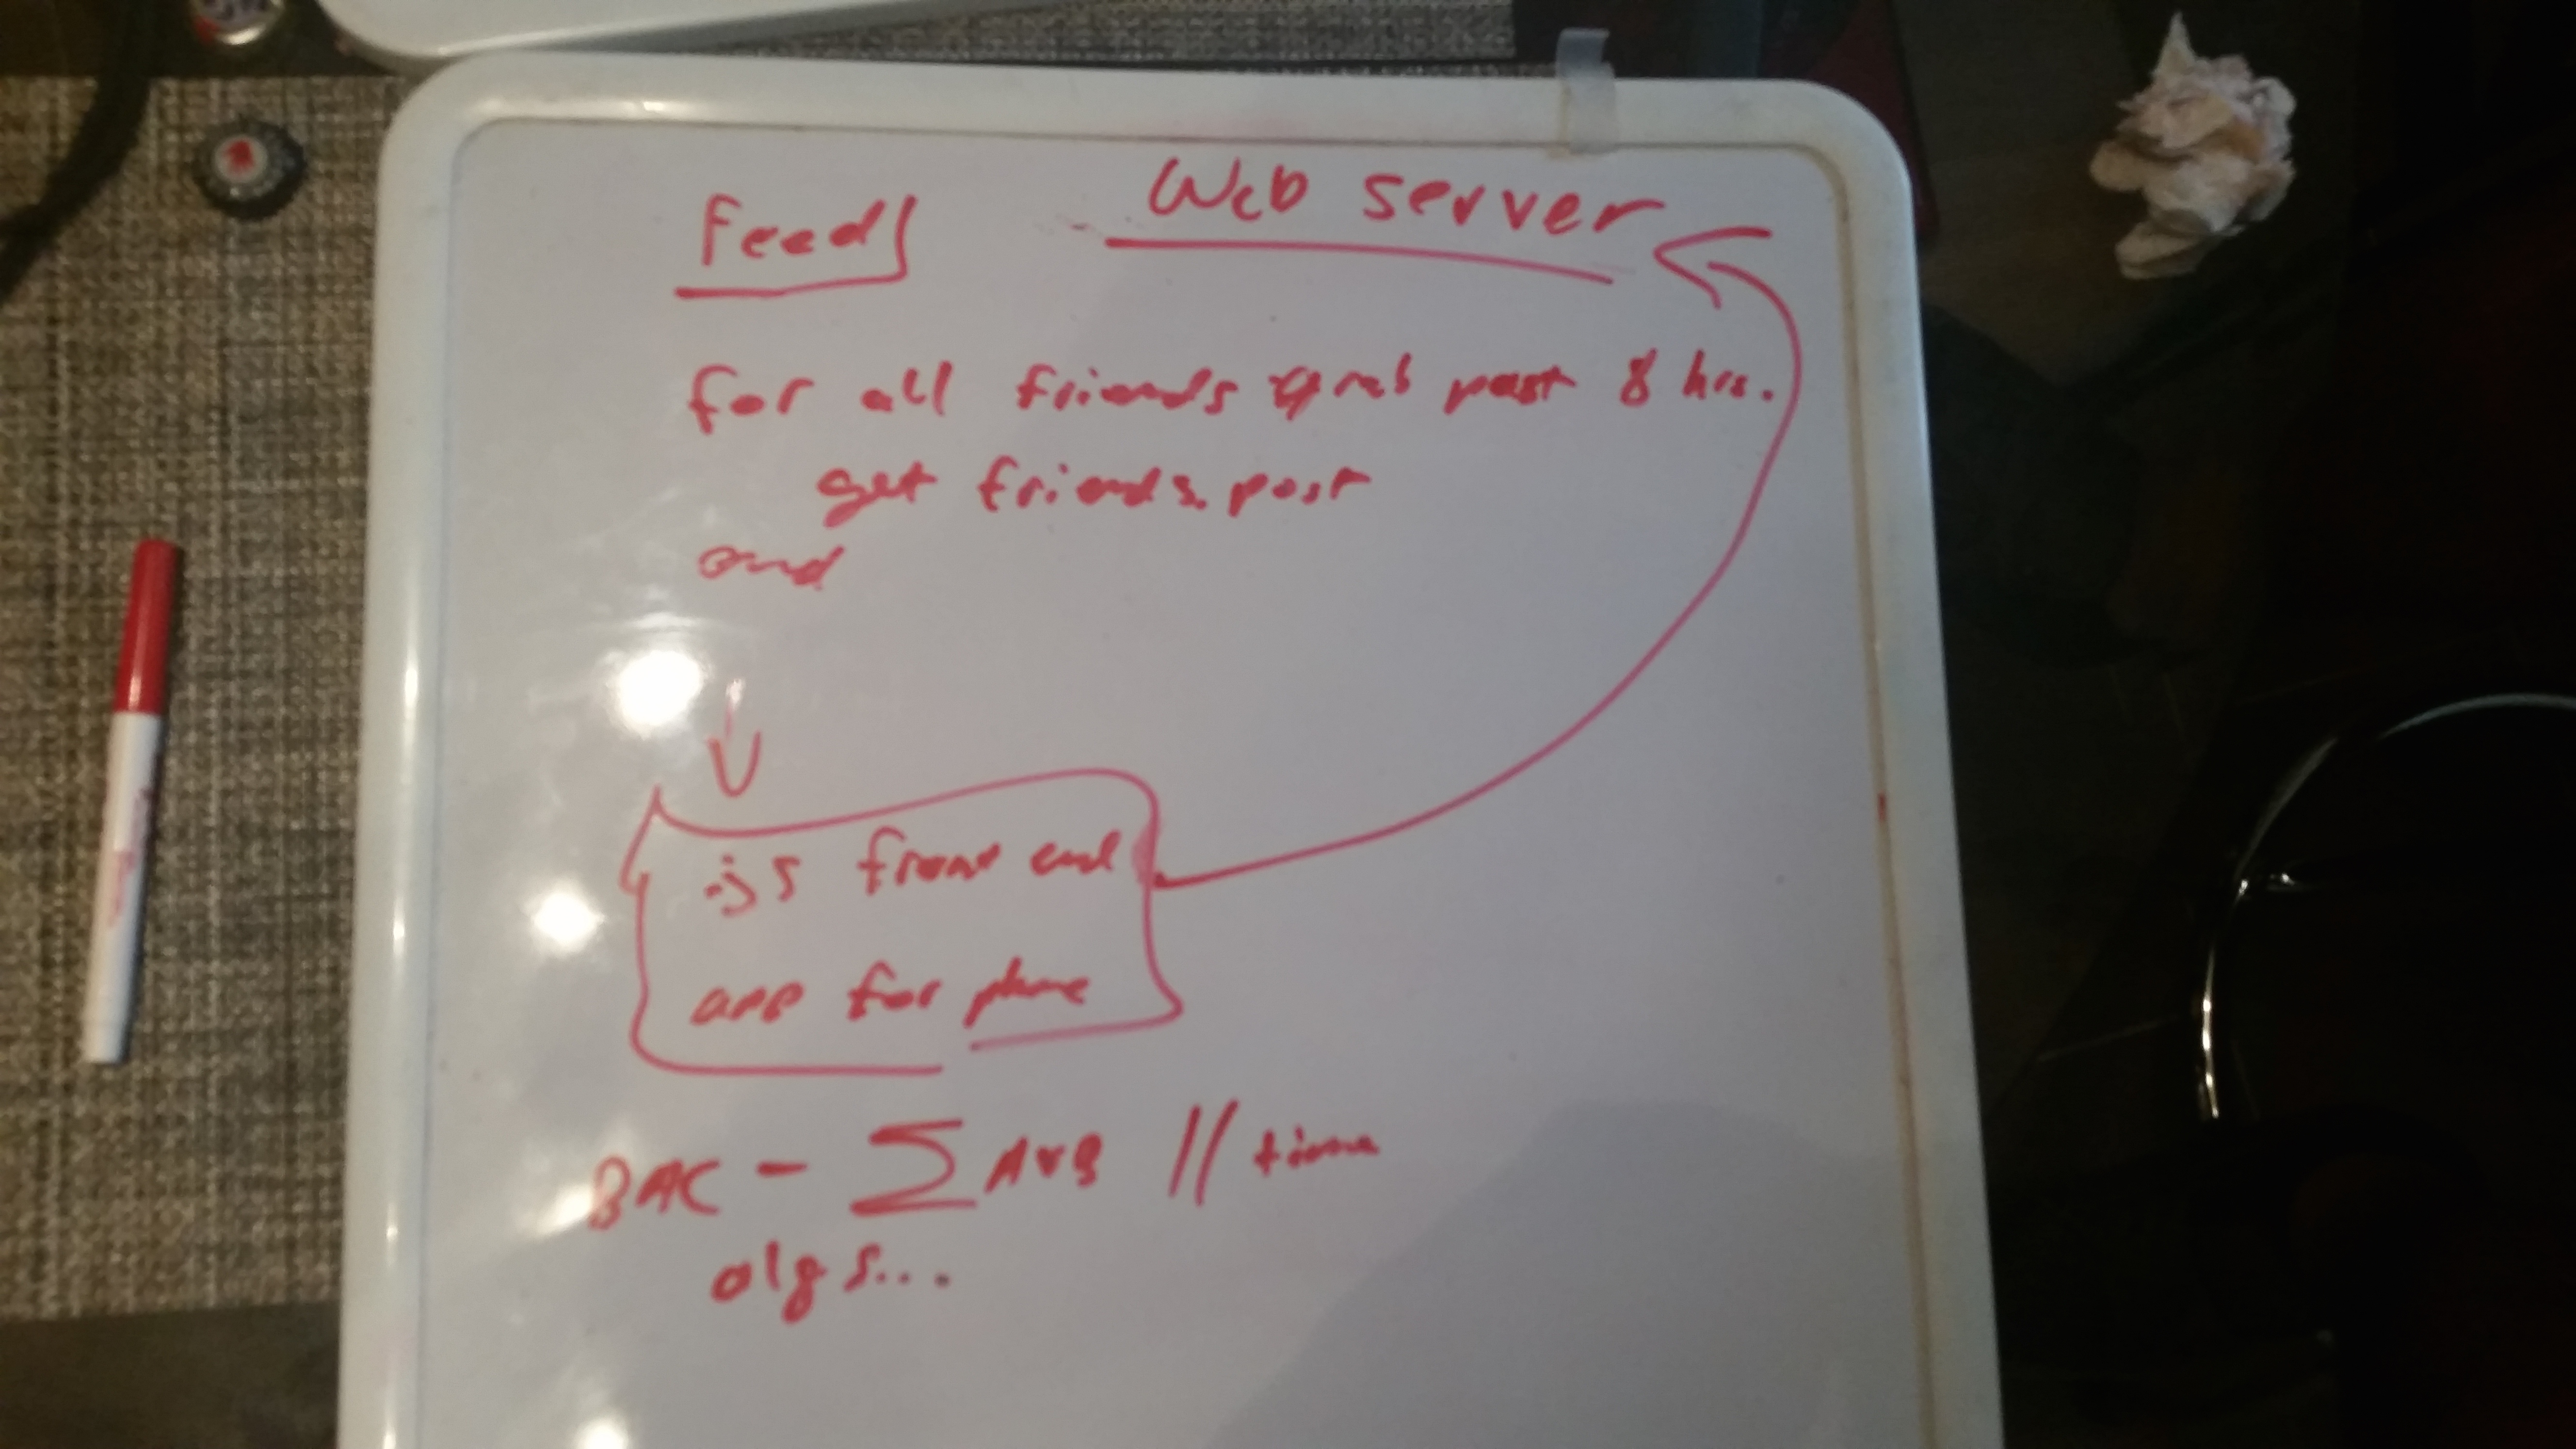 Feed
Web server
for all friends grab past 8 hrs.
get friends.post
end
js front end
app for phone
BAC - ∑ AVG // time
algs...